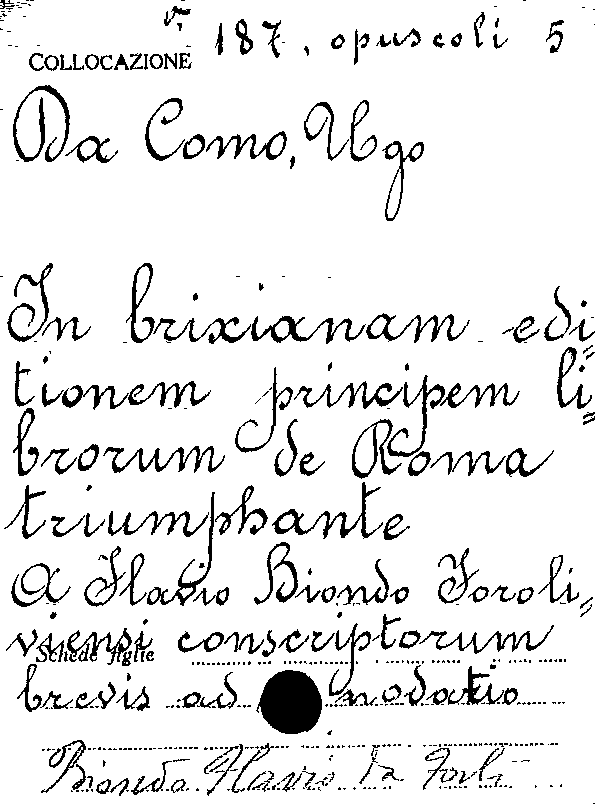 v. 187, opuscoli 5
COLLOCAZIONE
Da Como, Ugo
In brixianam edi=
tionem principem li=
brorum de Roma
triumphante
A Flavio Biondo Foroli=
viensi conscriptorum
Schede figlie
brevis ad nodatio
Biondo Flavio da Forlì